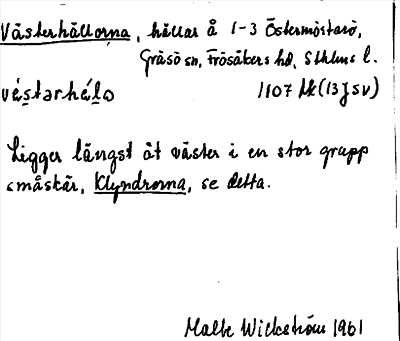 Västerhällorna, hällar å 1-3 Östermöstarö,
Gräsö sn, Frösåkers hd, Sthlms l.
véstarhélo 1107 (13j sv)
Ligger längst åt väster i en stor grupp
småskär, Klyndrorna, se detta.
Malte Wickström 1961